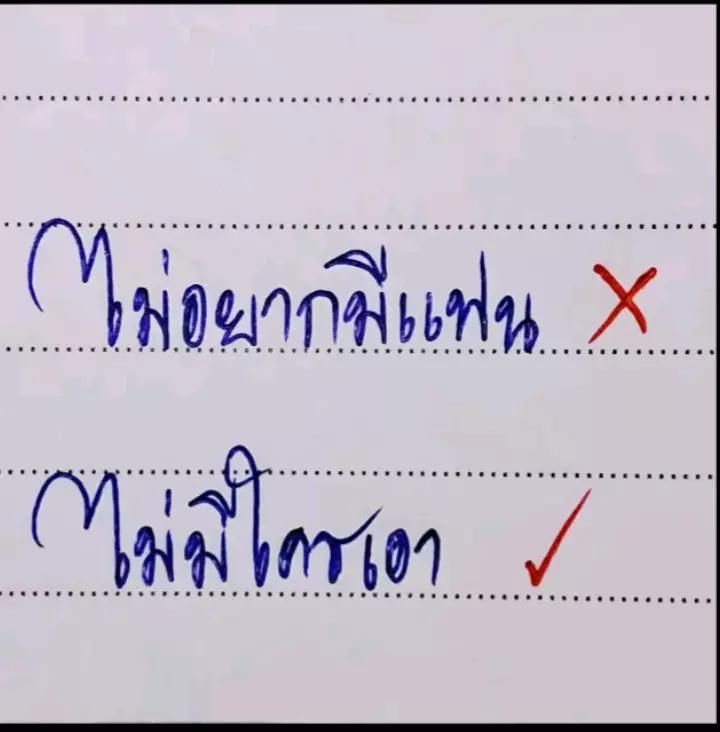 ไม่อยากมีแฟน
ไม่มีใครเอา